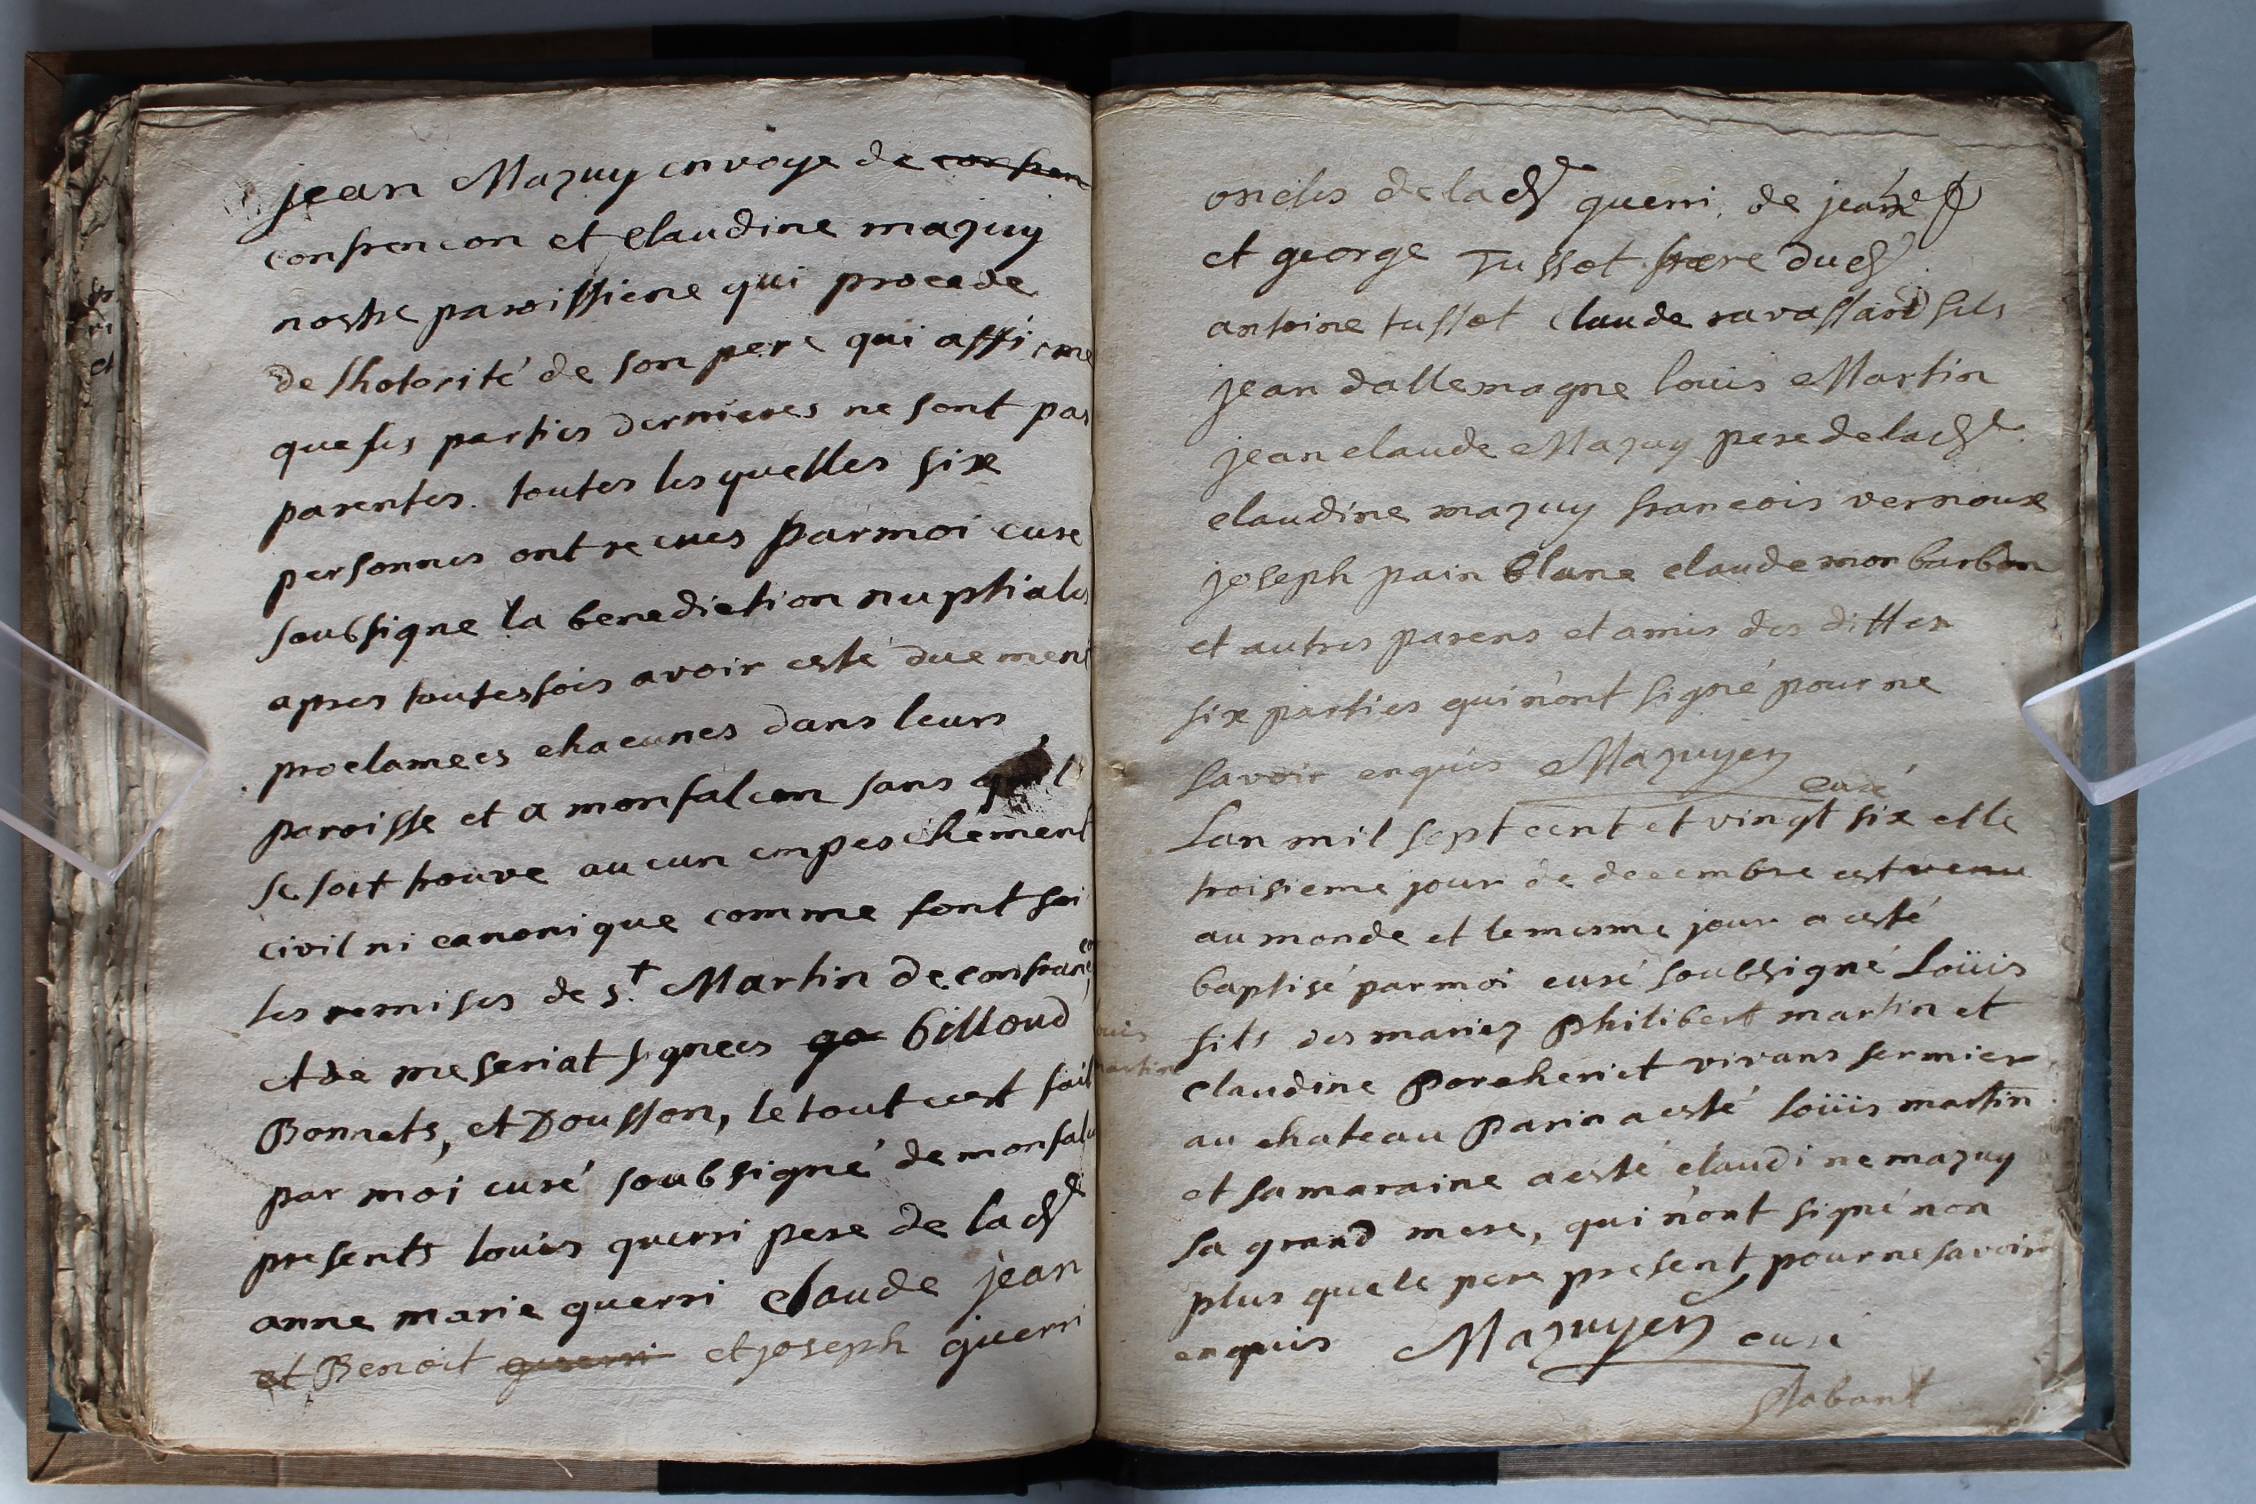 jean Mazuy envoye de confren
confrencon et Claudine mazuy
nostre paroissiene qui procede
de lhotorité de son pere qui affirme
que ses parties dernieres ne sont pas
parentes. toutes les quelles six
personnes ont recues par moi cure
soubsigne la benediction nuptiales
apres toutesfois avoir esté duement
proclamees chacunes dans leurs
paroisse et a monfalcon sans quil
se soit trouve aucun empeschement
civil ni canonique comme font foi
les remises de st Martin de confrancon
et de meseriat signees ga billoud
Bonnets, et Dousson, le tout cest fait
par moi curé soubsigné de monfalcon
presents louis guerri pere de lad.e
anne marie guerri claude jean
et Benoit guerri et joseph guerri
oncles de lad.e guerri, de jeanne
et george Tussot frere dud.
antoine tussot Claude ravassard fils
jean dallemagne louis Martin
jean claude Mazuy pere de lad.e
claudine mazuy francois vernoux
joseph pain blanc claude monbarbon
et autres parens et amis des dittes
six parties qui n'ont signé pour ne
savoir enquis Mazuyer curé
Lan mil sept cent et vingt six et le
troisieme jour de decembre est venu
au monde et le mesme jour a esté
baptisé par moi curé soubsigné Loüis
fils des mariez Philibert martin et
Claudine Porcheriet vivans fermier
au chateau Parin a esté loüis martin
et sa maraine a esté claudine mazuy
sa grand mere, qui n'ont signé non
plus que le pere present pour ne savoir
enquis Mazuyer curé
martin